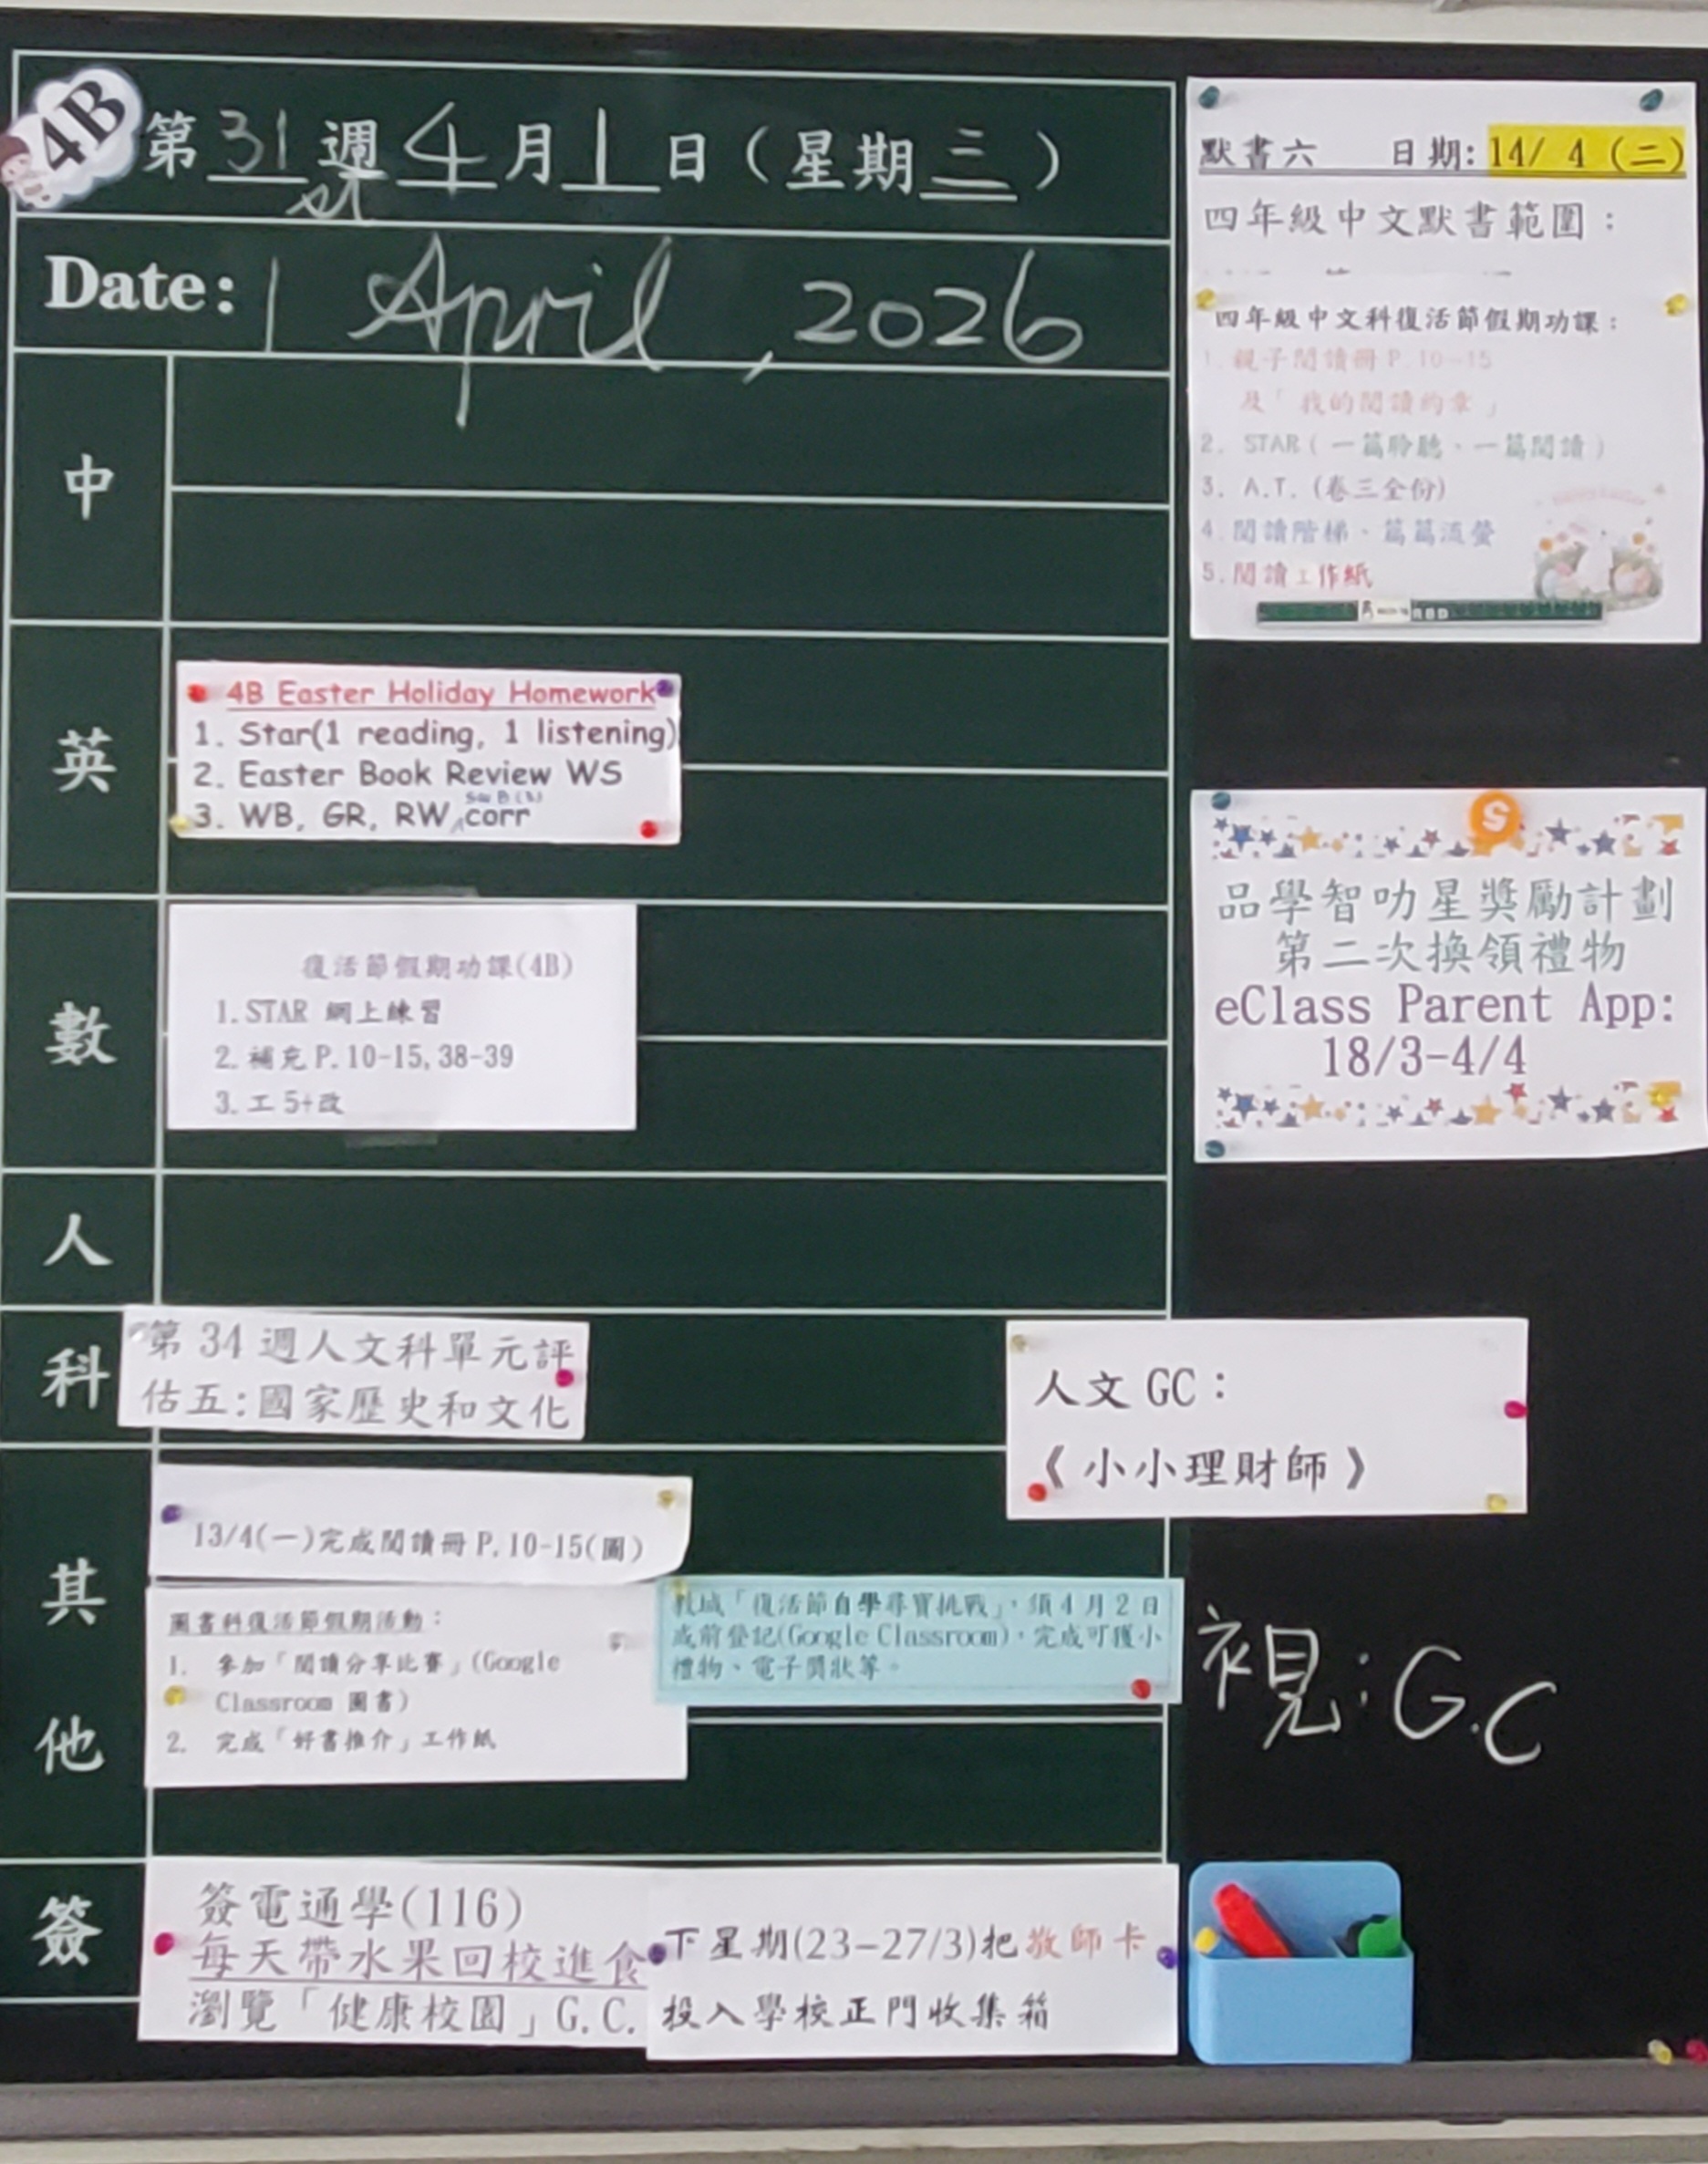 4B
第31週4月1日（星期三）
st
Date: 1 April, 2026
中
英
4B Easter Holiday Homework
1. Star(1 reading, 1 listening)
2. Easter Book Review WS
3. WB, GR, RW, corr
數
復活節假期功課(4B)
1.STAR 網上練習
2.補充P.10-15,38-39
3.工5+改
人
科
第34週人文科單元評
估五:國家歷史和文化
人文GC：
《小小理財師》
其他
13/4(一)完成閱讀冊P.10-15(圖)
圖書科復活節假期活動：
1. 參加「閱讀分享比賽」(Google
Classroom 圖書)
2. 完成「好書推介」工作紙
教城「復活節自學尋寶挑戰」，須4月2日
或前登記(Google Classroom)，完成可獲小
禮物、電子獎狀等。
簽
簽電通學(116)
每天帶水果回校進食
瀏覽「健康校園」G.C.
下星期(23-27/3)把敬師卡
投入學校正門收集箱
默書六 日期:14/ 4 (二)
四年級中文默書範圍：
四年級中文科復活節假期功課：
1. 親子閱讀冊P.10-15
及「我的閱讀約章」
2. STAR(一篇聆聽、一篇閱讀)
3. A.T. (卷三全份)
4.閱讀階梯、篇篇流螢
5.閱讀工作紙
品學智叻星獎勵計劃
第二次換領禮物
eClass Parent App:
18/3-4/4
視：G.C